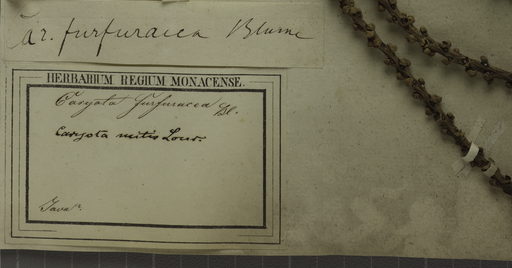 Car. furfuracea Blume
HERBARIUM REGIUM MONACENSE.
Caryota furfuracea Bl.
Caryota mitis Lour.
Java